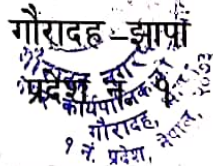 गौरादह –झापा
प्रदेश नं १
कार्यपालिकाको
गौरादह,
१ नं. प्रदेश, नेपाल,